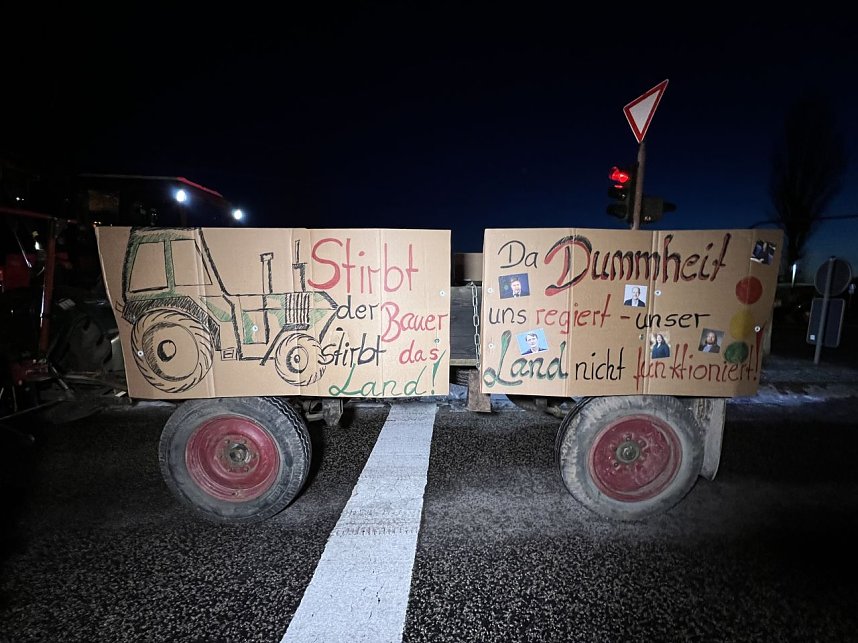 Stirbt
der Bauer
stirbt das
Land!
Da Dummheit
uns regiert - unser
Land nicht funktioniert!